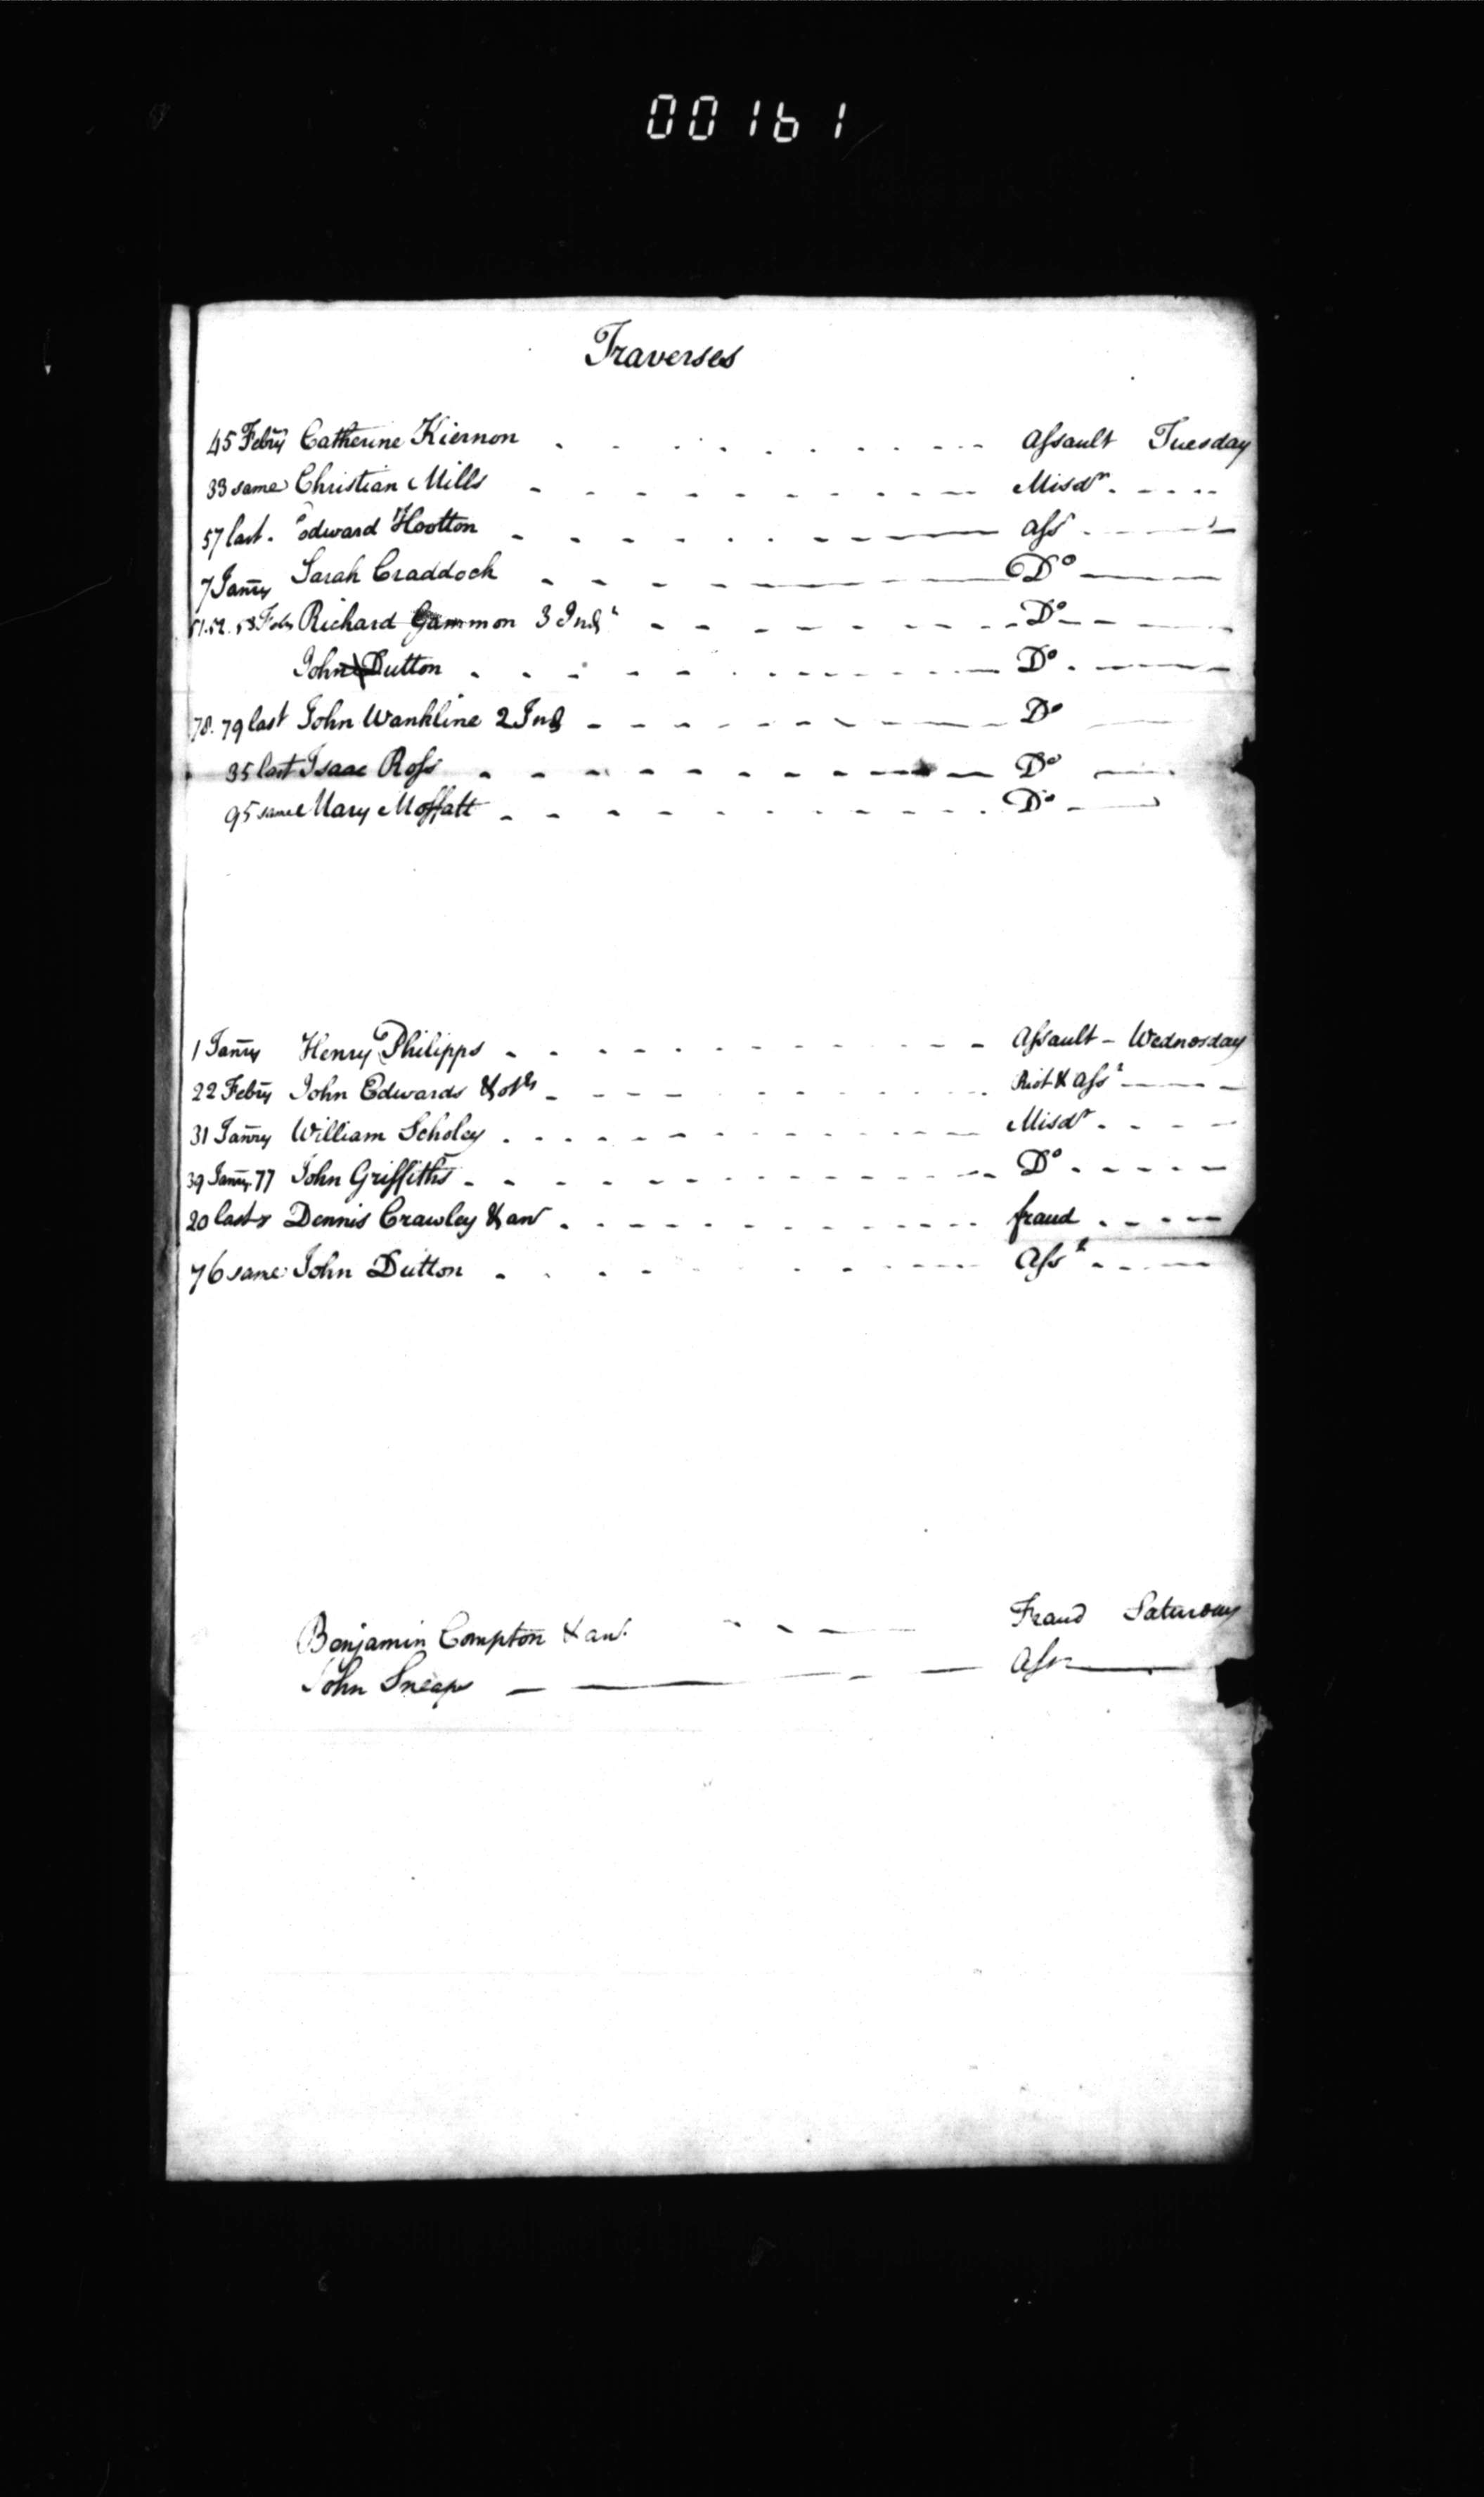 00161
Traverses
45 Febry Catherine Kiernon Assault Tuesday
33 same Christian Mills Misdr
57 last. Edward Hootton Asst
7 Janry Sarah Craddock Do
51. 52. 53 Feb Richard Gammon 3 Inds Do
John Dutton Do
78. 79 last John Wankline 2 Inds Do
35 last Isaac Ross Do
95 same Mary Moffatt Do
1 Janry Henry Philipps Assault - Wednesday
22 Febry John Edwards & ors Riot & Asst
31 Janry William Scholey Misdr
39 Janry 77 John Griffiths Do
20 last Dennis Crawley & anr fraud
76 same John Dutton Asst
Benjamin Compton & anr. Fraud Saturday
John Sneap Asst